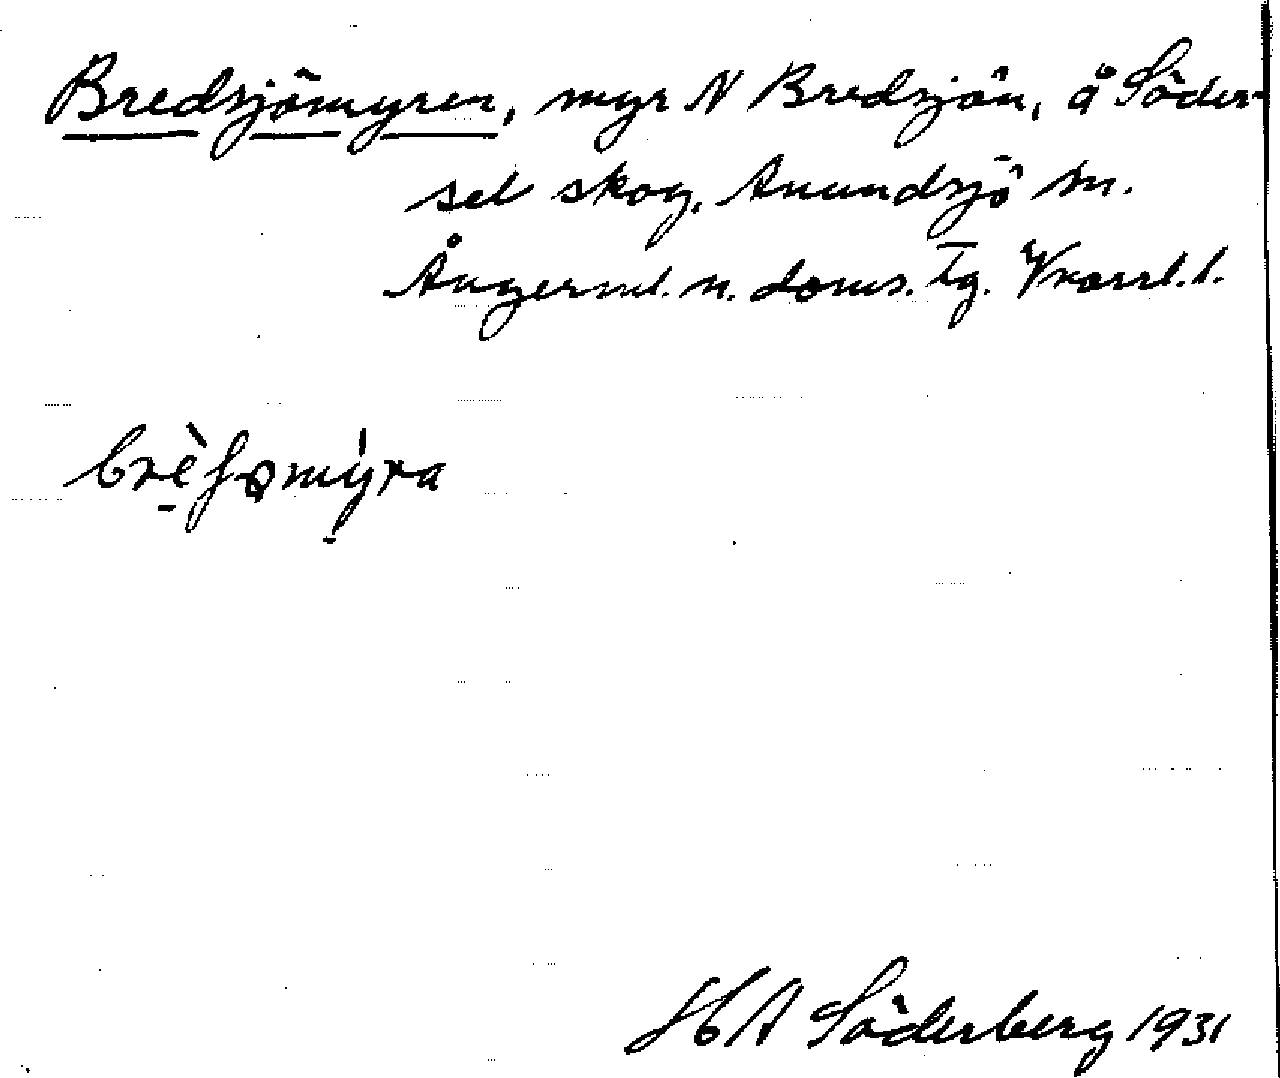 Bredsjömyren, myr N Bredsjön, å Söder-
sel skog, Anundsjö sn.
Ångerml. n. doms. tg. Vnorrl. l.
brèʃomýra
H A Söderberg 1931